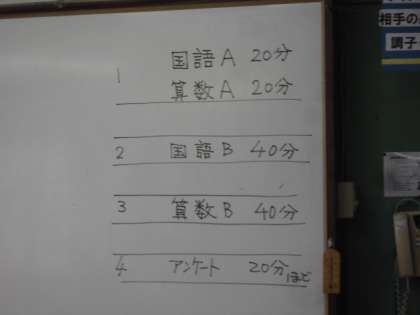 1 国語A 20分
算数A 20分
2 国語B 40分
3 算数B 40分
4 アンケート 20分ほど
相手の
調子